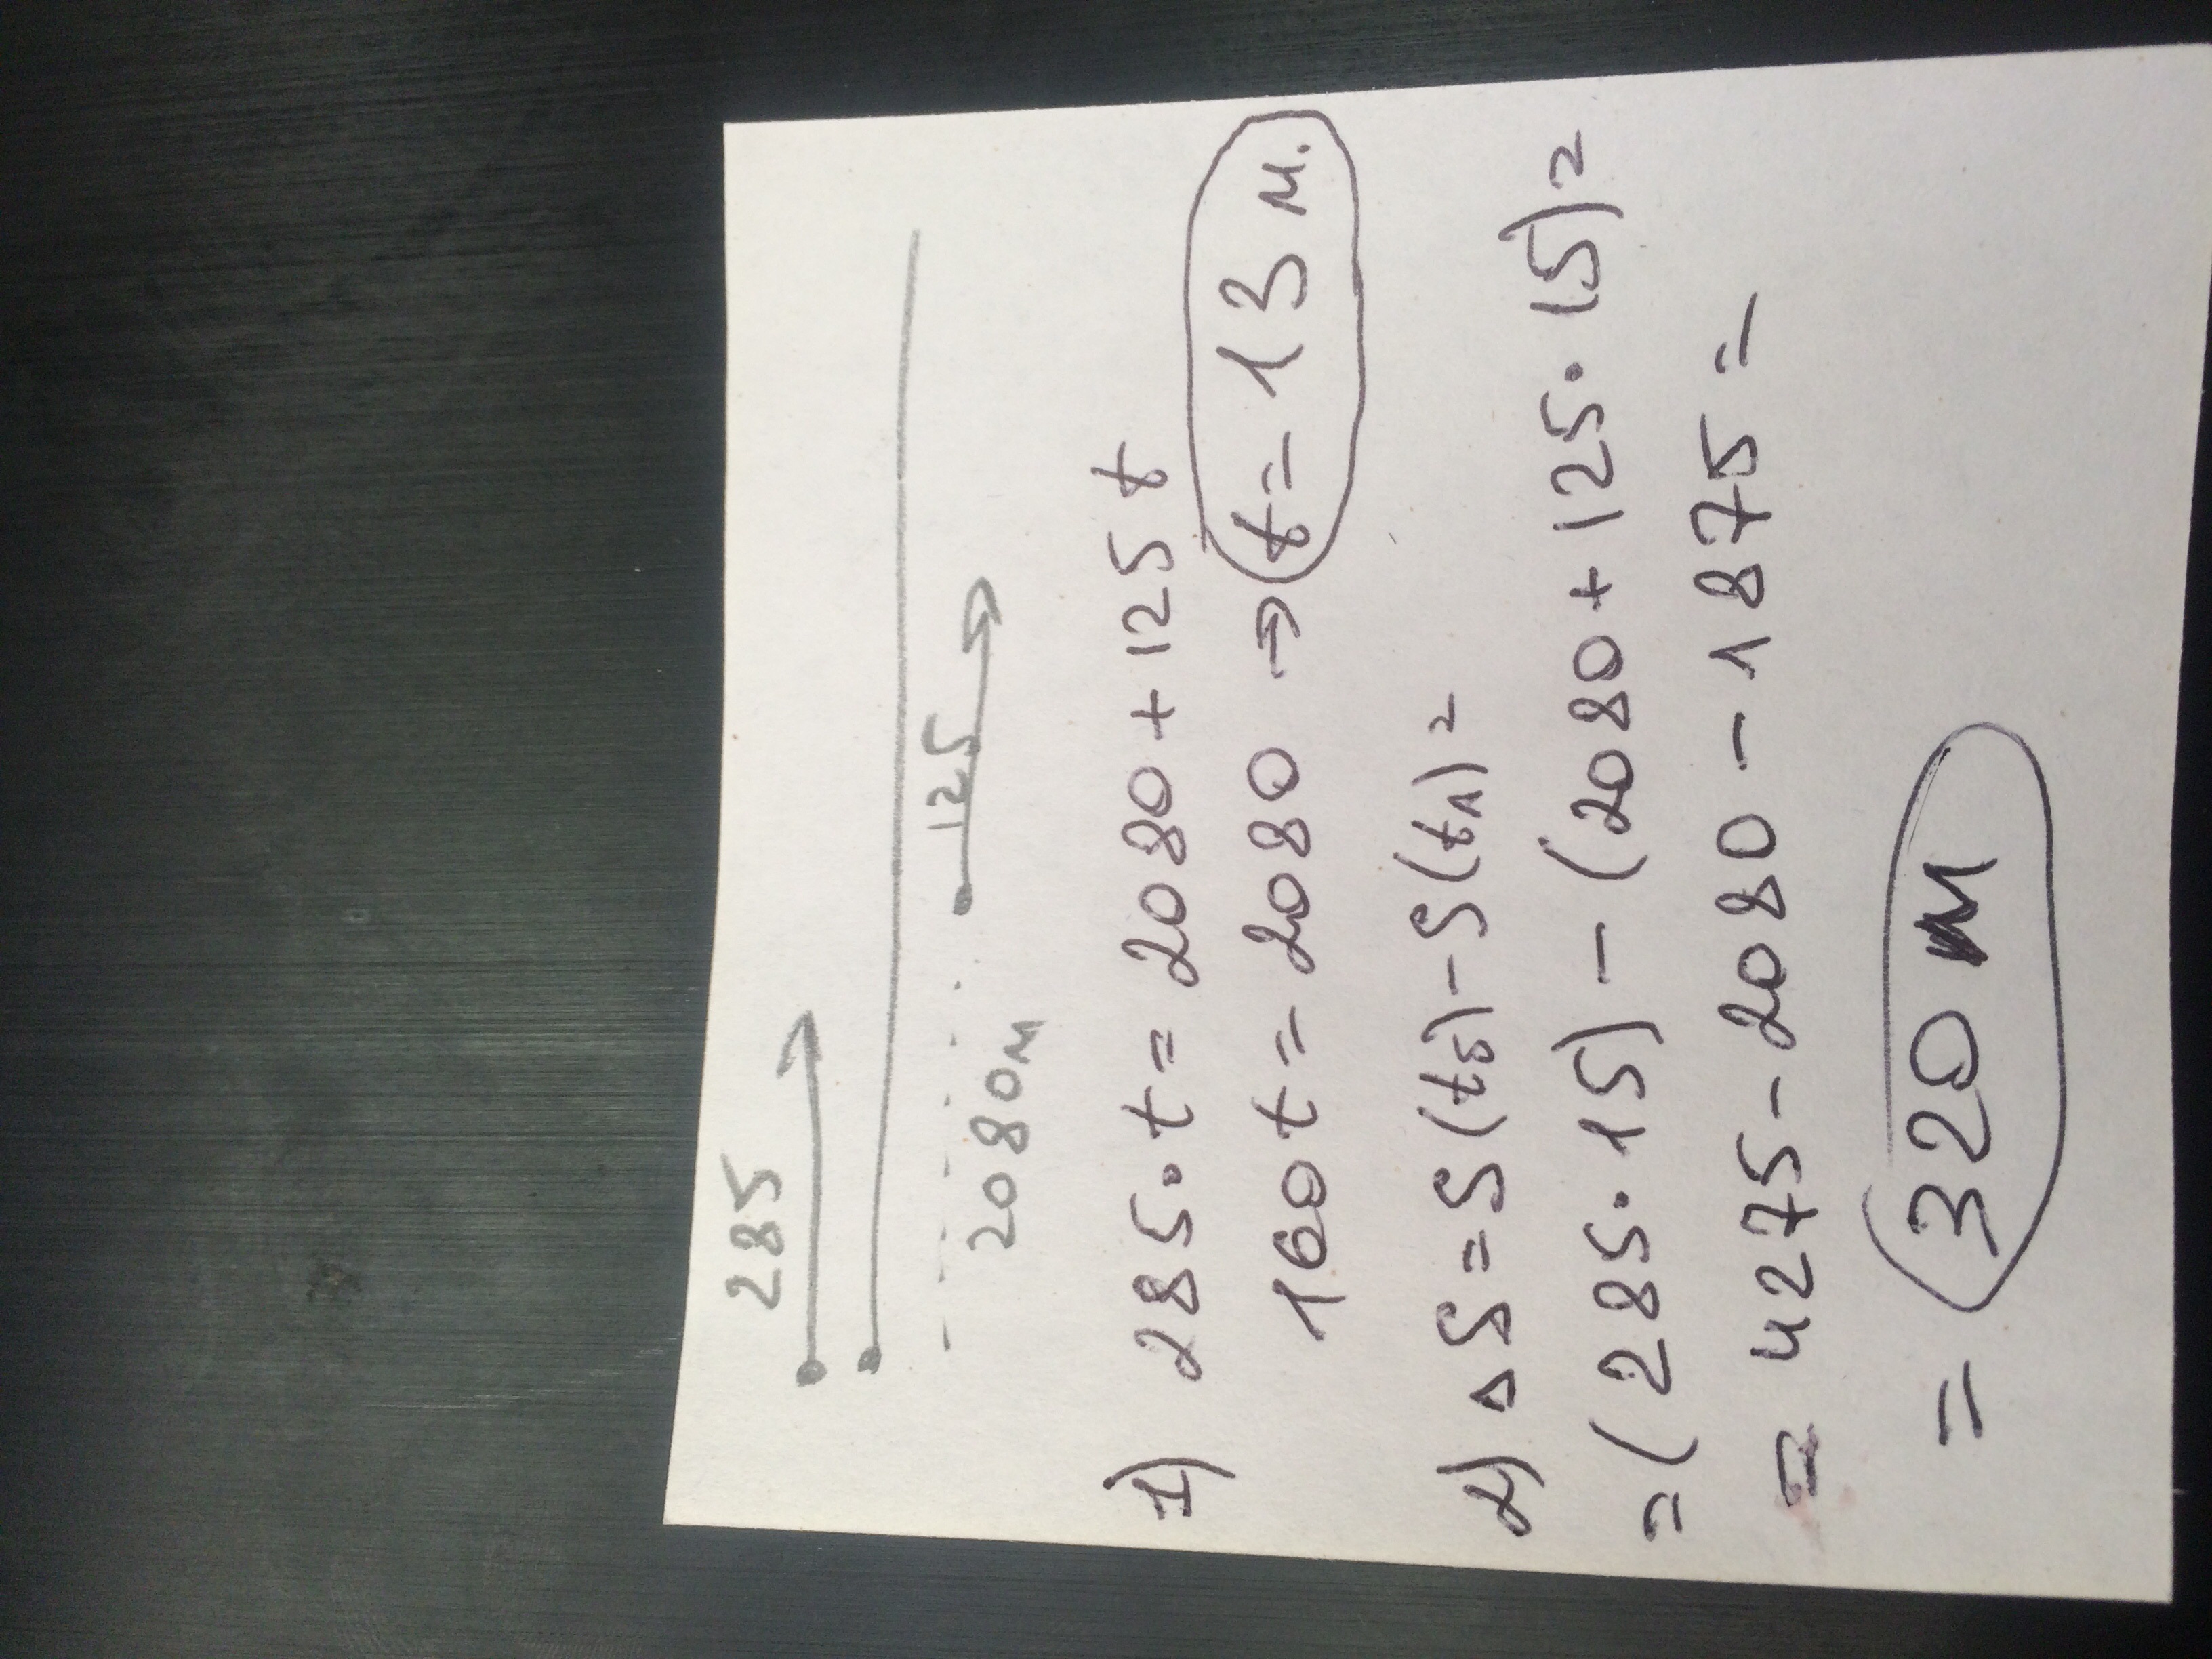 285
125
2080м
1) 285·t=2080+125t
160t=2080 ⇒ t=13м.
2) ΔS=S(tб)-S(tл)=
=(285·15)-(2080+125·15)=
=4275-2080-1875=
=320м